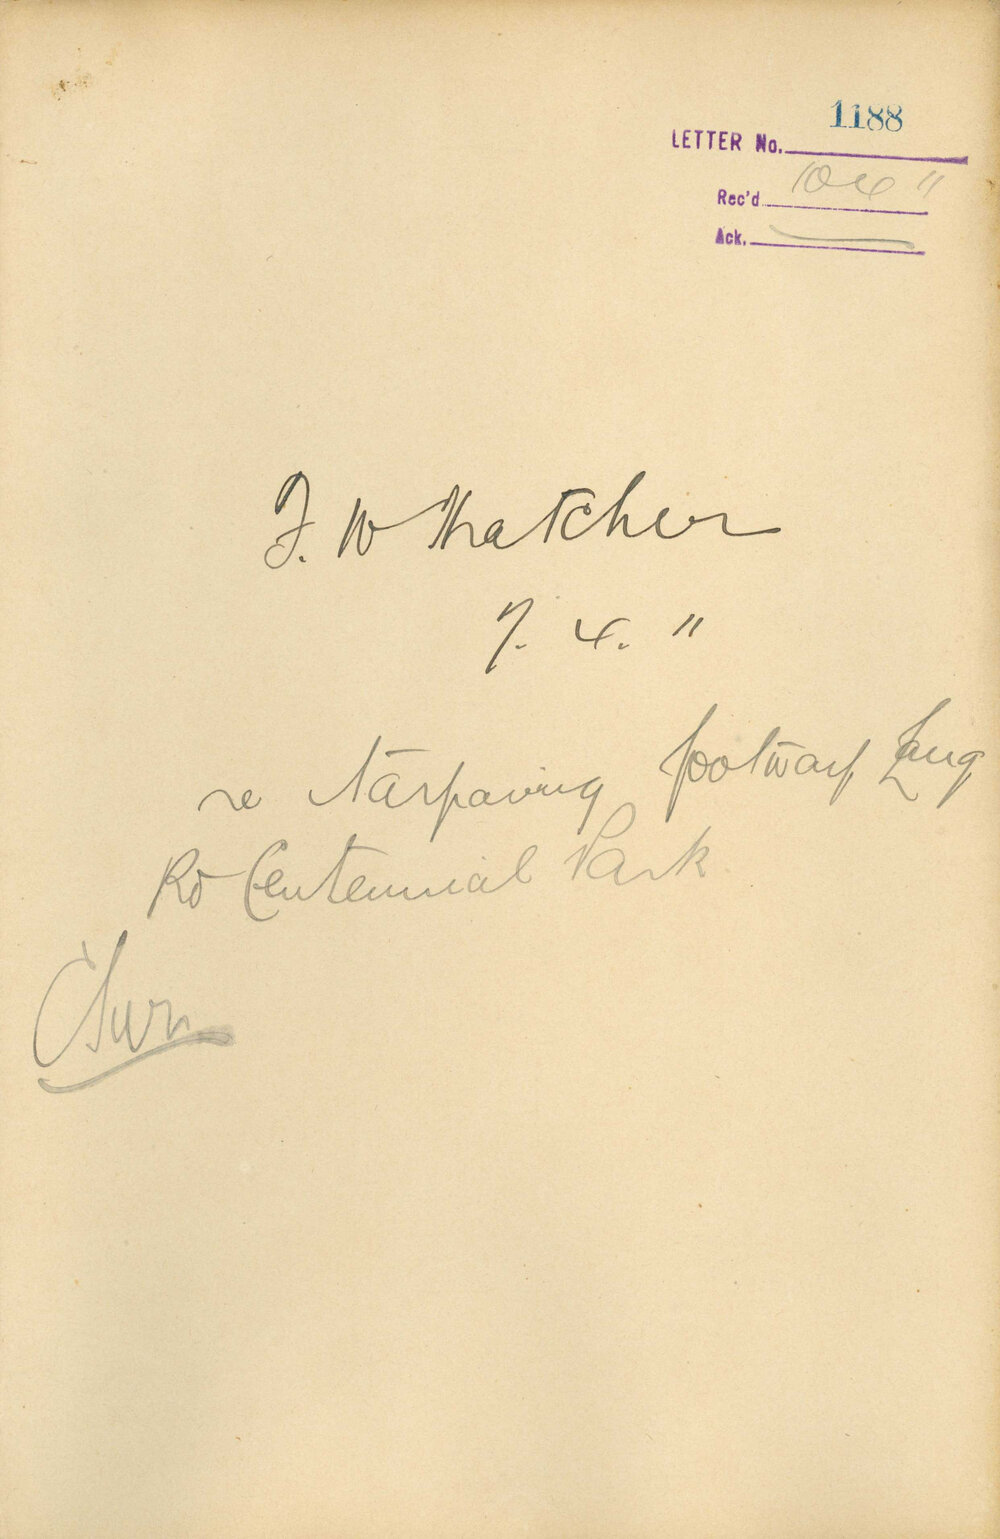 1188
LETTER No.
Rec'd 10 4 11
Ack.
F. W Thatcher
7. 4. 11
re Tarpaving footway Lang
Rd Centennial Park